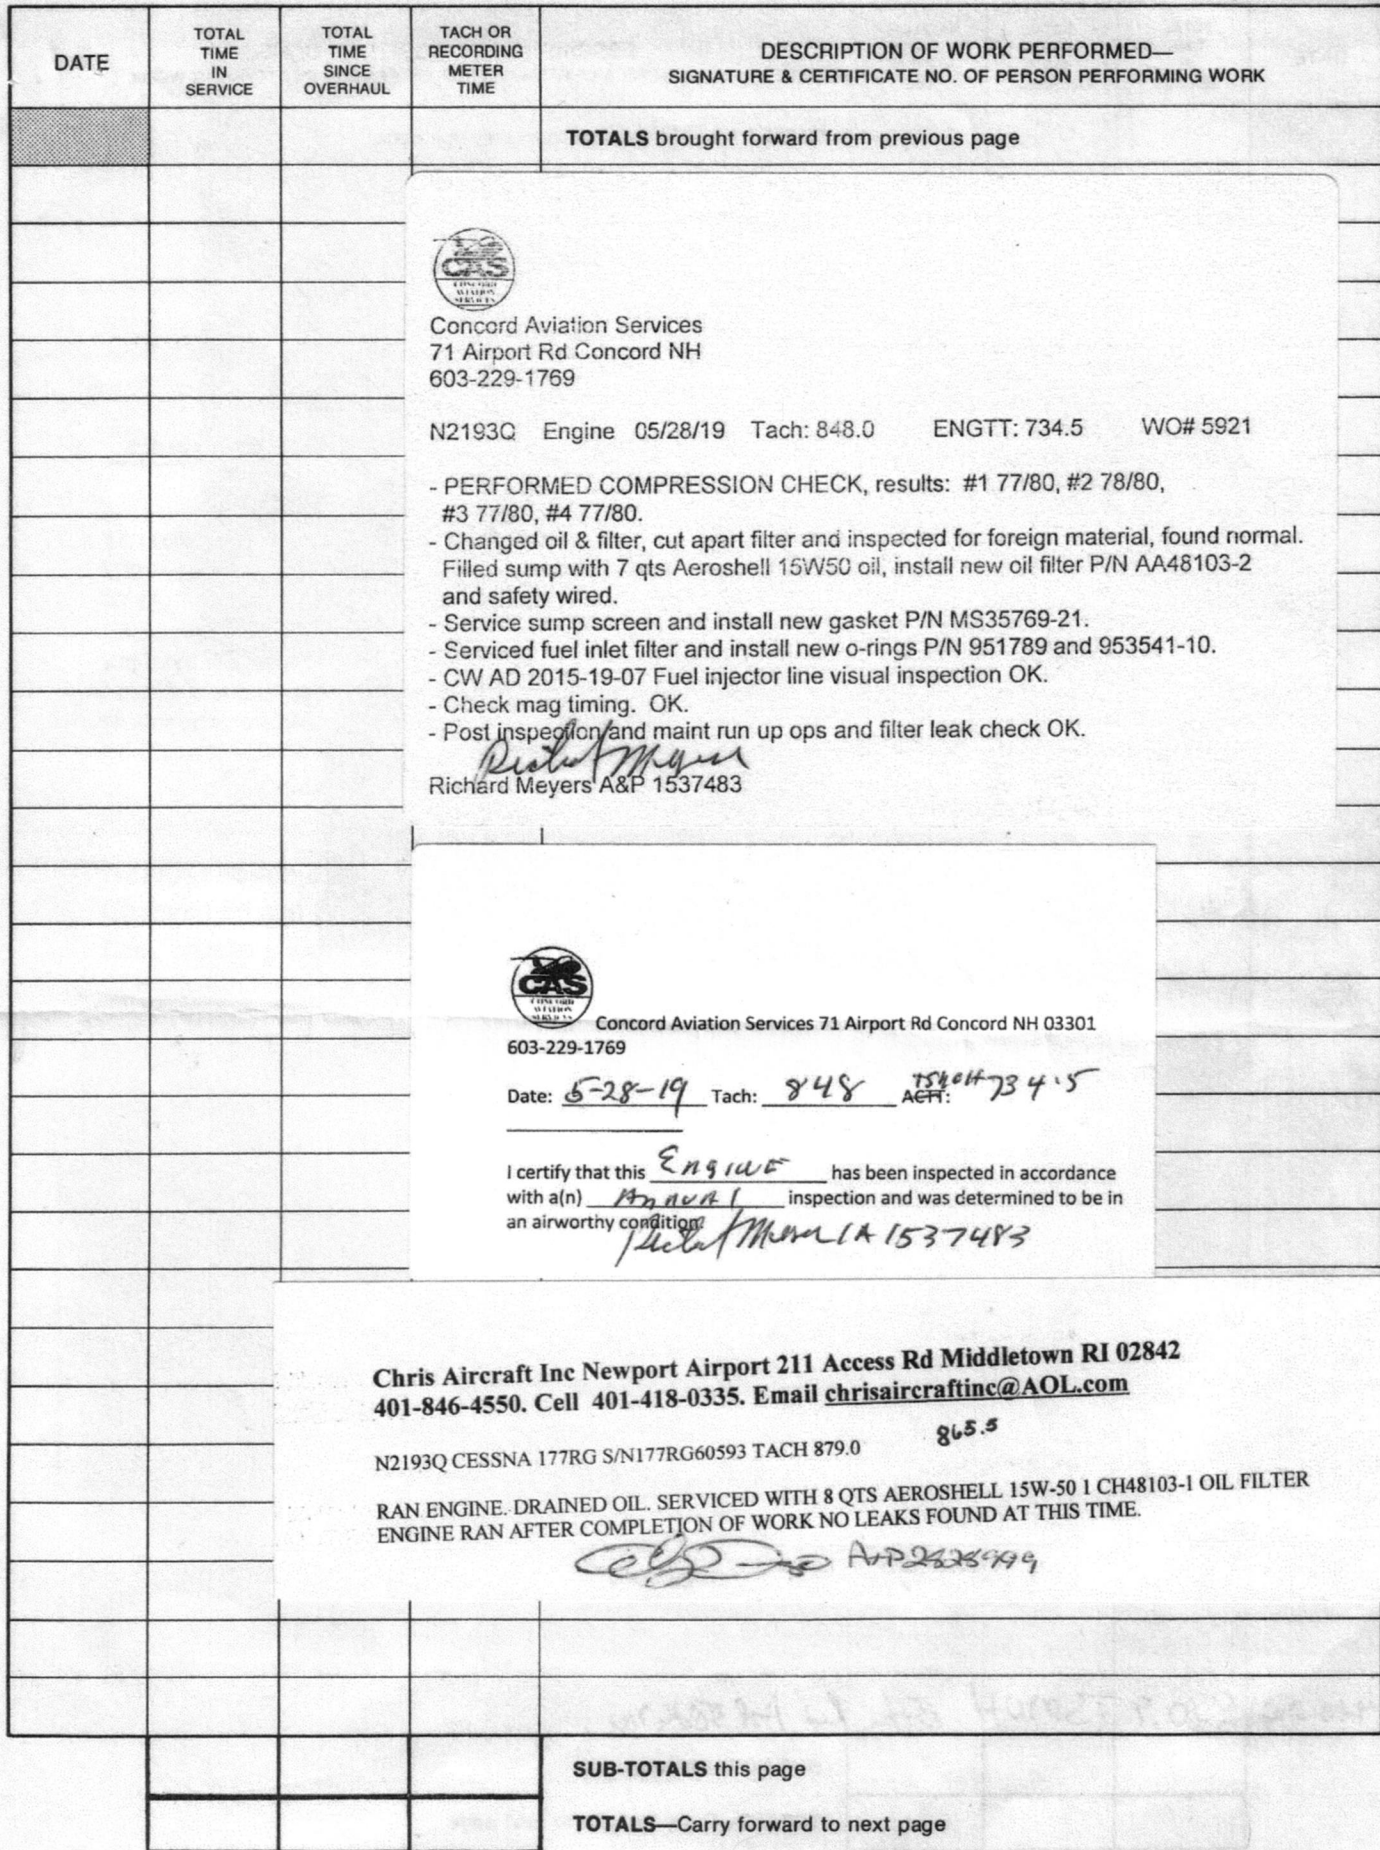 DATE
TOTAL
TIME
IN
SERVICE
TOTAL
TIME
SINCE
OVERHAUL
TACH OR
RECORDING
METER
TIME
DESCRIPTION OF WORK PERFORMED—
SIGNATURE & CERTIFICATE NO. OF PERSON PERFORMING WORK
TOTALS brought forward from previous page
CAS
CONCORD
AVIATION
SERVICES
Concord Aviation Services
71 Airport Rd Concord NH
603-229-1769
N2193Q Engine 05/28/19 Tach: 848.0 ENGTT: 734.5 WO# 5921
- PERFORMED COMPRESSION CHECK, results: #1 77/80, #2 78/80,
#3 77/80, #4 77/80.
- Changed oil & filter, cut apart filter and inspected for foreign material, found normal.
Filled sump with 7 qts Aeroshell 15W50 oil, install new oil filter P/N AA48103-2
and safety wired.
- Service sump screen and install new gasket P/N MS35769-21.
- Serviced fuel inlet filter and install new o-rings P/N 951789 and 953541-10.
- CW AD 2015-19-07 Fuel injector line visual inspection OK.
- Check mag timing. OK.
- Post inspection and maint run up ops and filter leak check OK.
Richard Meyers A&P 1537483
CAS
CONCORD
AVIATION
SERVICES
Concord Aviation Services 71 Airport Rd Concord NH 03301
603-229-1769
Date: 5-28-19 Tach: 848 TSMOH ACTT: 734.5
I certify that this ENGINE has been inspected in accordance
with a(n) Annual inspection and was determined to be in
an airworthy condition.
IA 1537483
Chris Aircraft Inc Newport Airport 211 Access Rd Middletown RI 02842
401-846-4550. Cell 401-418-0335. Email chrisaircraftinc@AOL.com
865.5
N2193Q CESSNA 177RG S/N177RG60593 TACH 879.0
RAN ENGINE. DRAINED OIL. SERVICED WITH 8 QTS AEROSHELL 15W-50 1 CH48103-1 OIL FILTER
ENGINE RAN AFTER COMPLETION OF WORK NO LEAKS FOUND AT THIS TIME.
SUB-TOTALS this page
TOTALS—Carry forward to next page